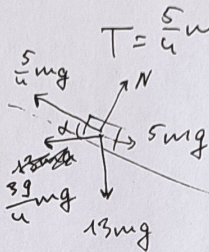 T = 5/4 m
5/4 mg
N
α
5mg
39/4 mg
13mg